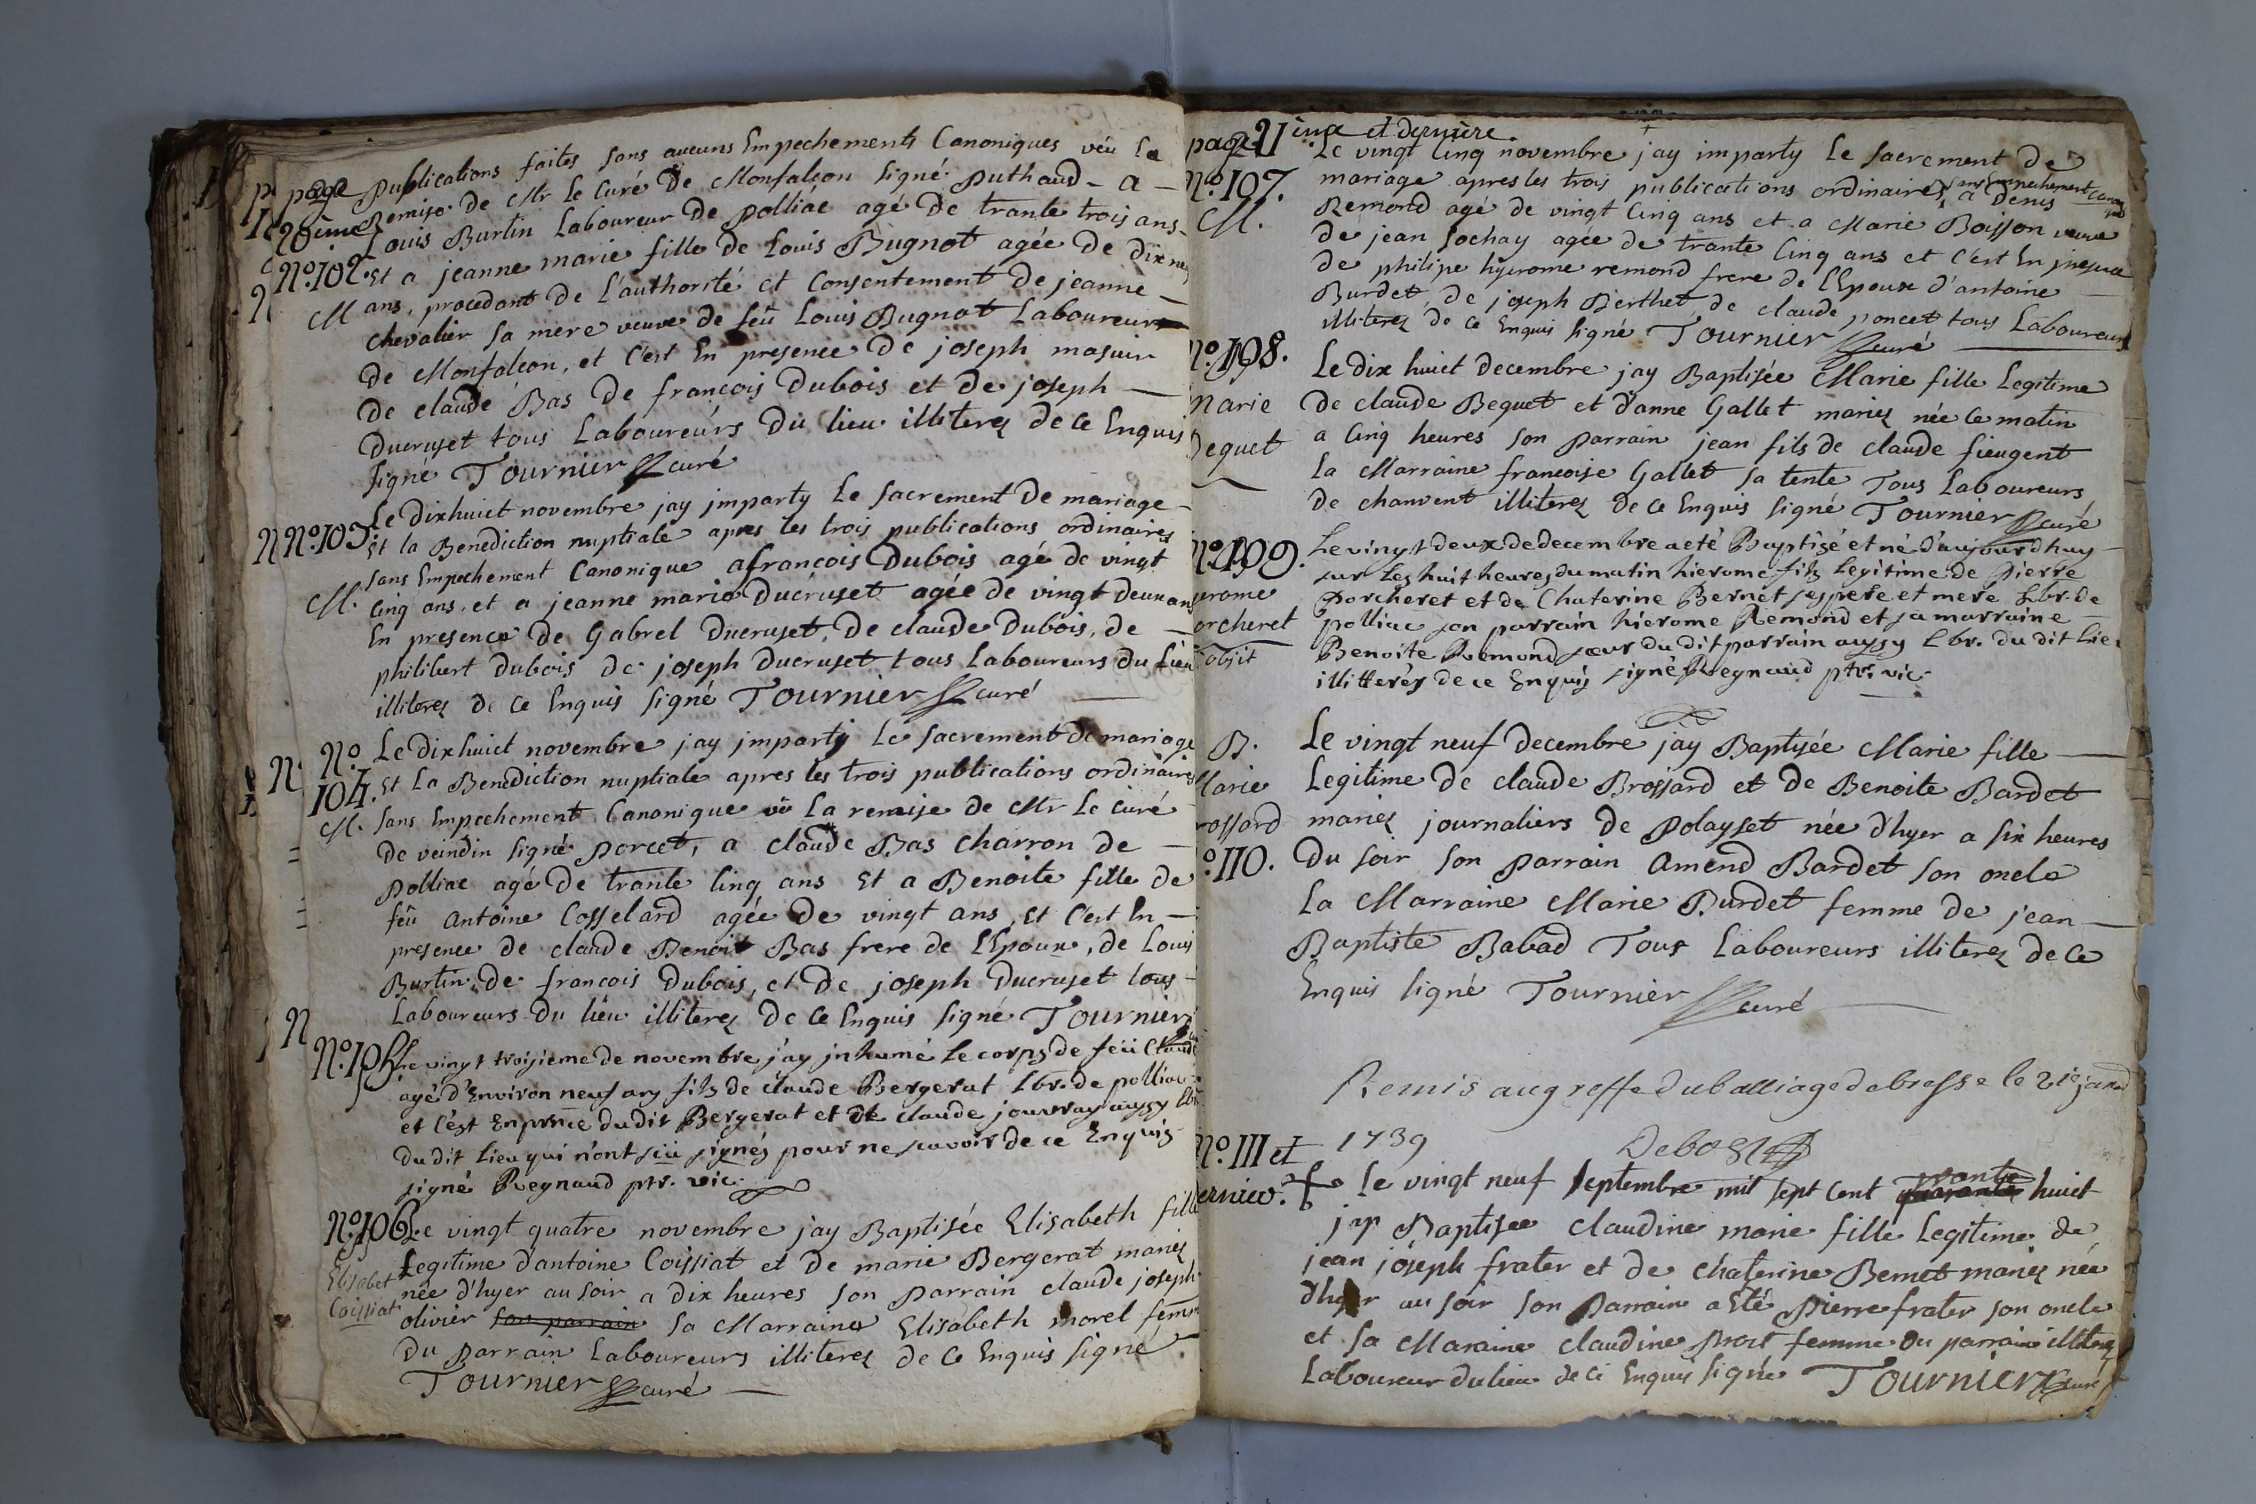 page publications faites sans aucuns Empechements Canoniques veu la
20ème Remise de Mr Le Curé de Monfalcon signé puthaud - a -
Louis Burtin Laboureur de polliac agé de trante trois ans
No. 102. Et a jeanne marie fille de Louis Bugnot agée de dix
M ans, procedant de L'authorité et Consentement de jeanne
chevalier sa mere veuve de feû Louis Bugnot Laboureur
de Monfalcon, et C'est En presence de joseph masuir
de claude Bas de francois Dubois et de joseph
Ducruset tous Laboureurs du lieu illiterez de ce Enquis
signé Tournier curé
Le dixhuict novembre jay imparty Le sacrement de mariage
No. 103. Et la Benediction nuptiale apres les trois publications ordinaires
sans Empechement Canonique a francois Dubois agé de vingt
M. Cinq ans, et a jeanne marie Ducruset agée de vingt deux ans
En presence de Gabrel Ducruset, de claude Dubois, de
philibert dubois de joseph Ducruset tous Laboureurs du Lieu
illiterez de Ce Enquis signé Tournier curé
No. Le dixhuict novembre jay imparty Le sacrement de mariage
104. Et La Benediction nuptiale apres les trois publications ordinaires
M. sans Empechement Canonique vû La remise de Mr Le curé
de veindin signé porcet, a claude Bas charron de
polliac agé de trante Cinq ans Et a Benoite fille de
feû antoine Cosselard agée de vingt ans, Et C'est En
presence de claude Benoit Bas frere de L'Epoux, de Louis
Burtin, de francois Dubois, et de joseph Ducruset tous
Laboureurs du lieu illiterez de Ce Enquis signé Tournier
No. 105 Le vingt troisieme de novembre j'ay jnhumé le corps de feü Claude
agé d'Environ neuf ans fils de claude Bergerat Lbr. de polliac
et C'est En prnce dudit Bergerat et de claude jouvray aussy Lbr
du dit Lieu qui n'ont sçu signés pour ne scavoir de ce Enquis
signé Regnaud ptr. vic.
No. 106 Le vingt quatre novembre jay Baptisée Elisabeth fille
Legitime d'antoine Coissiat et de marie Bergerat mariez
Elisabet née d'hyer au soir a dix heures son parrain claude joseph
Coissiat olivier son parrain sa Marraine Elisabeth morel femme
du parrain Laboureurs illiterez de Ce Enquis signé
Tournier curé
page 21 ème et dernière
Le vingt Cinq novembre jay imparty Le sacrement de
No. 107. mariage apres les trois publications ordinaires, sans Empechement a Denis
M. Remond agé de vingt Cinq ans et a Marie Boisson veuve
de jean sochay agée de trante Cinq ans et C'est En presence
de philipe hyerome remond frere de L'Epoux d'antoine
Burdet, de joseph Berthet, de claude poncet tous Laboureurs
illiterez de Ce Enquis signé Tournier curé
No. 108. Le dix huict decembre jay Baptisée Marie fille Legitime
Marie de claude Bequet et d'anne Gallet mariez née Ce matin
Bequet a Cinq heures son parrain jean fils de claude fieugent
La Marraine francoise Gallet sa tente Tous Laboureurs
de chanvent illiterez de Ce Enquis signé Tournier curé
No. 109. Le vingt deux de decembre a eté Baptisé et né d'aujourd'huy
sur Les huit heures du matin hierome fils Legitime de pierre
erome porcheret et de Chaterine Bernet ses pere et mere Lbr. de
orcheret polliac son parrain hierome Remond et sa marraine
objit Benoite Remond sœur du dit parrain aussy Lbr. du dit lieu
illitterés de ce Enquis signé Regnaud ptr. vic.
B. Le vingt neuf decembre jay Baptisée Marie fille
Marie Legitime de claude Brossard et de Benoite Bardet
rossard mariez journaliers de polayset née d'hyer a six heures
o. 110. du soir son parrain amend Bardet son oncle
La Marraine Marie Burdet femme de jean
Baptiste Babad Tous Laboureurs illiterez de Ce
Enquis signé Tournier curé
Remis au greffe du balliage de bresse le 21e janv
1739
No. 111 et
ernier. Le vingt neuf septembre mil sept Cent quarante trante huict
jay Baptisée claudine marie fille Legitime de
jean joseph frater et de chaterine Bernet mariez née
d'hyer au soir son parrain a Eté pierre frater son oncle
et sa Maraine claudine prost femme du parrain illiterez
Laboureur du lieu de Ce Enquis signé Tournier curé